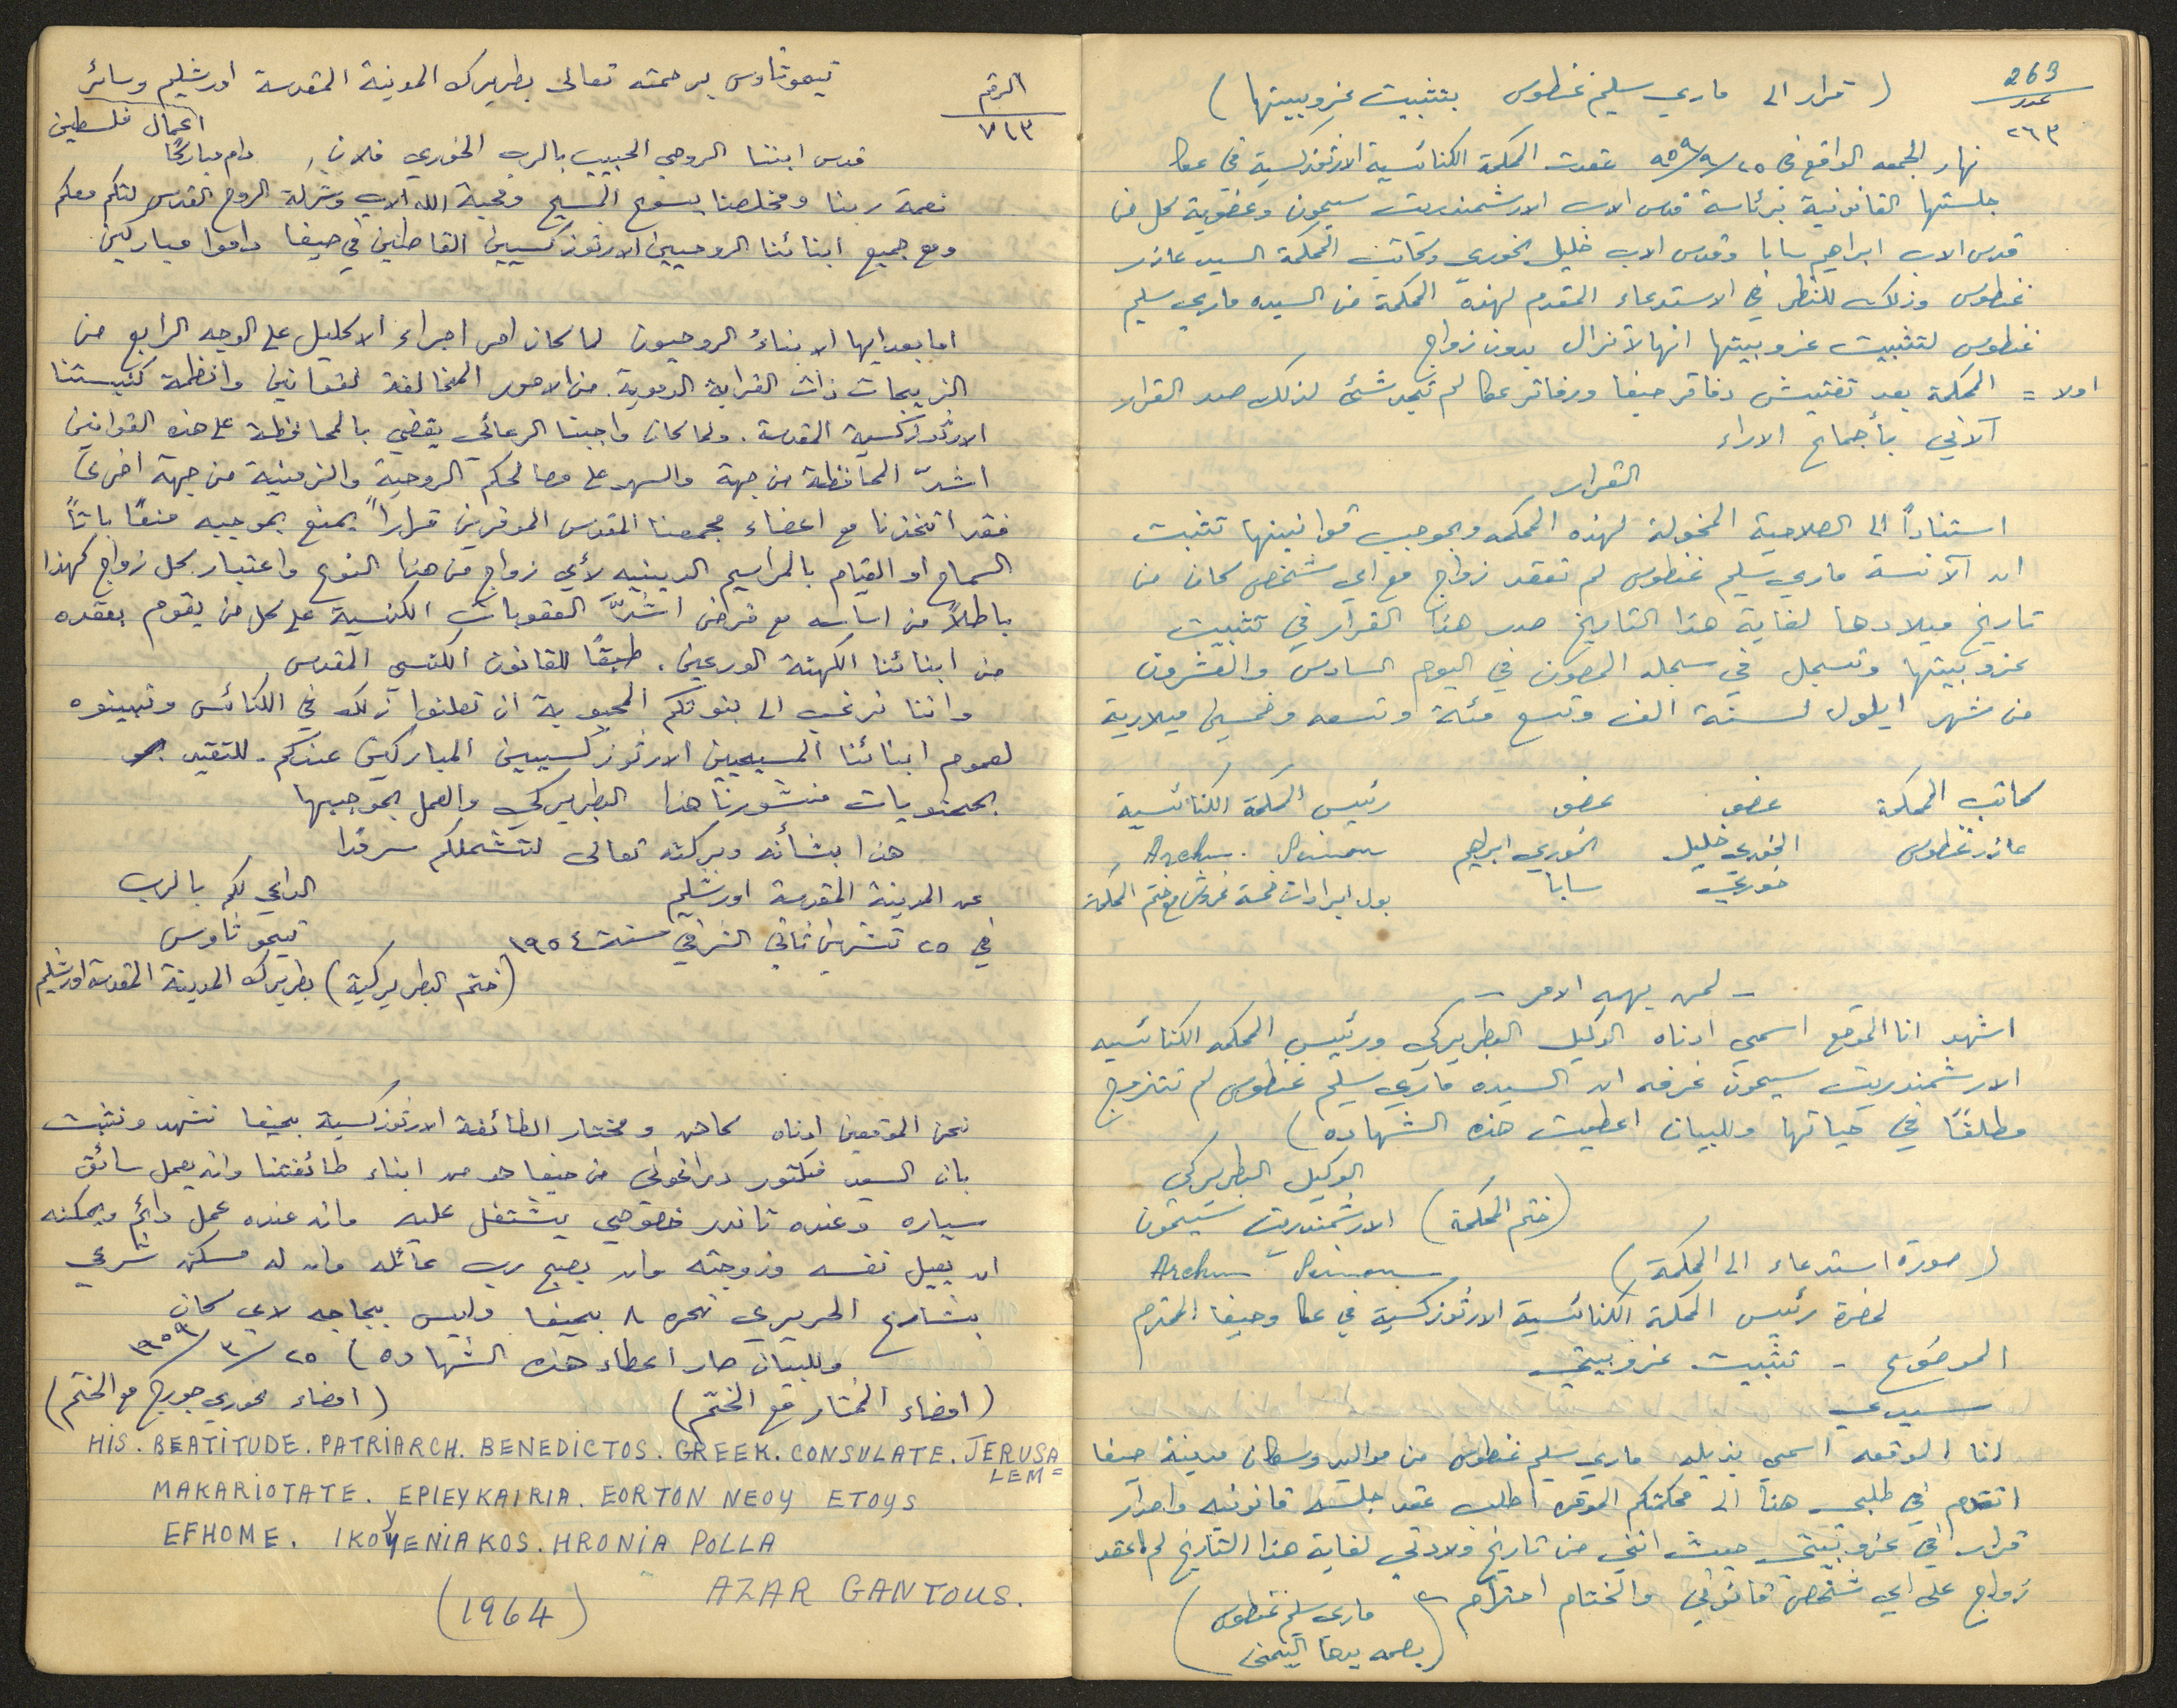 263
عدد
٢٦٣
( قرار الى ماري سليم غنطوس بتثبيت عزوبيتها )
نهار الجمعه الواقع في ٢٥/٩/٩٥٩ عقدت المحكمة الكنائسية الارثوذكسية في عكا
جلستها القانونية برئاسة قدس الاب الارشمندريت سيمون وعضوية كل من
قدس الاب ابراهيم سابا وقدس الاب خليل الخوري وكاتب المحكمة السيد عازر
غنطوس وذلك للنظر في الاستدعاء المقدم لهذه المحكمة من السيده ماري سليم
غنطوس لتثبيت عزوبيتها انها لا تزال بدون زواج
اولا = المحكمة بعد تفتيش دفاتر حيفا ودفاتر عكا لم تجد شئ لذلك صدر القرار
الآتي بأجماع الاراء
القرار
استناداً الى الصلاحية المخولة لهذه المحكمه وبموجب قوانينها تثبت
ان الآنسة ماري سليم غنطوس لم تعقد زواج مع اي شخص كان من
تاريخ ميلادها لغاية هذا التاريخ صدر هذا القرار في تثبيت
عزوبيتها وتسجل في سجلد المصون في اليوم السادس والعشرون
من شهر ايلول لسنة الف وتسع مئة وتسعه وخمسين ميلادية
كاتب المحكمة عضو عضو رئيس المحكمة الكنائسية
عازر غنطوس الخوري خليل الخوري ابراهيم Archm. Simon
خوري سابا بول ايرادات خمسة غروش مع ختم المحكمة
- لمن يهمه الامر -
اشهد انا الموقع اسمي ادناه الوكيل البطريركي ورئيس المحكمه الكنائسيه
الارشمندريت سيمون غرفه ان السيده ماري سليم غنطوس لم تتزوج
مطلقًا في حياتها وللبيان اعطيت هذه الشهاده )
الوكيل البطريركي
( ختم المحكمة ) الارشمندريت سيمون
( صورة استدعاء الى المحكمة ) Archm Simon
لحضرة رئيس المحكمة الكنائسية الارثوذكسية في عكا وحيفا المحترم
الموضوع - تثبيت عزوبيتي
سيدي
انا الموقعه اسمي بذيله ماري سليم غنطوس من مواليد وسكان مدينة حيفا
اتقدم في طلبي هذا الى محكمتكم الموقره اطلب عقد جلسه قانونيه واصدار
قرار في عزوبيتي حيث انني من تاريخ ولادتي لغاية هذا التاريخ لم اعقد
زواج على اي شخص قانوني والختام احترام
( ماري سليم غنطوس
بصمه يدها اليمنى )
الرقم
٧١٣
تيموثاوس برحمته تعالى بطريرك المدينة المقدسة اورشليم وسائر
اعمال فلسطين
قدس ابننا الروحي الحبيب بالرب الخوري فلان، دام مباركًا
نعمة ربنا ومخلصنا يسوع المسيح ومحبة الله الاب وشركة الروح القدس لتكم معكم
ومع جميع ابنائنا الروحيين الارثوذكسيين القاطنين في حيفا داموا مباركين
اما بعد ايها الابناءُ الروحيون لما كان امر اجراء الاكليل على الوجه الرابع من
الزيجات ذات القرابة الدموية. من الامور المخالفة لقوانين وانظمة كنيستنا
الارثوذكسية المقدسة. ولما كان واجبنا الرعائي يقضي بالمحافظة على هذه القوانين
اشدّ المحافظة من جهة والسهر على مصالحكم الروحية والزمنية من جهة اخرى
فقد اتخذنا مع اعضاء مجمعنا المقدس الموقرين قراراً يمنع بموجبه منعًا باتاً
السماح او القيام بالمراسيم الدينيه لأي زواج من هذا النوع واعتبار كل زواج كهذا
باطلاً من اساسه مع فرض اشدّ العقوبات الكنسية على كل من يقوم بعقده
من ابنائنا الكهنة الورعين. طبقًا للقانون الكنسي المقدس
واننا نرغب الى بنوتكم المحبوبة ان تعلنوا ذلك في الكنائس وتبينوه
لعموم ابنائنا المسيحيين الارثوذكسيين المباركين عندكم. للتقيد
بمحتويات منشورنا هذا البطريركي والعمل بموجبها
هذا بشأنه وبركته تعالى لتشملكم سرمدًا
عن المدينة المقدسة اورشليم الداعي لكم بالرب
في ٢٥ تشرين ثاني الشرقي سنة ١٩٥٤ تيموثاوس
( ختم البطريركية ) بطريرك المدينة المقدسة اورشليم
نحن الموقعين ادناه كاهن ومختار الطائفة الارثوذكسية بحيفا نشهد ونثبت
بان السيد فكتور من حيفا هو من ابناء طائفتنا وانه يعمل سائق
سياره وعنده تاندر خصوصي يشتغل عليه وانه عنده عمل دائم ويمكنه
ان يعيل نفسه وزوجته وان يصبح رب عائله وان له مسكن شرعي
بشارع الحريري نمره ٨ بحيفا وليس بحاجه لاي كان
وللبيان صار اعطاء هذه الشهاده ) ٢٥/٣/١٩٥٩
( امضاء المختار مع الختم ) ( امضاء الخوري جورج مع الختم )
HIS. BEATITUDE. PATRIARCH. BENEDICTOS. GREEK. CONSULATE. JERUSA
LEM =
MAKARIOTATE. EPIEYKAIRIA. EORTON NEOY ETOYS
EFHOME. IKOYENIAKOS. HRONIA POLLA
AZAR GANTOUS.
(1964)